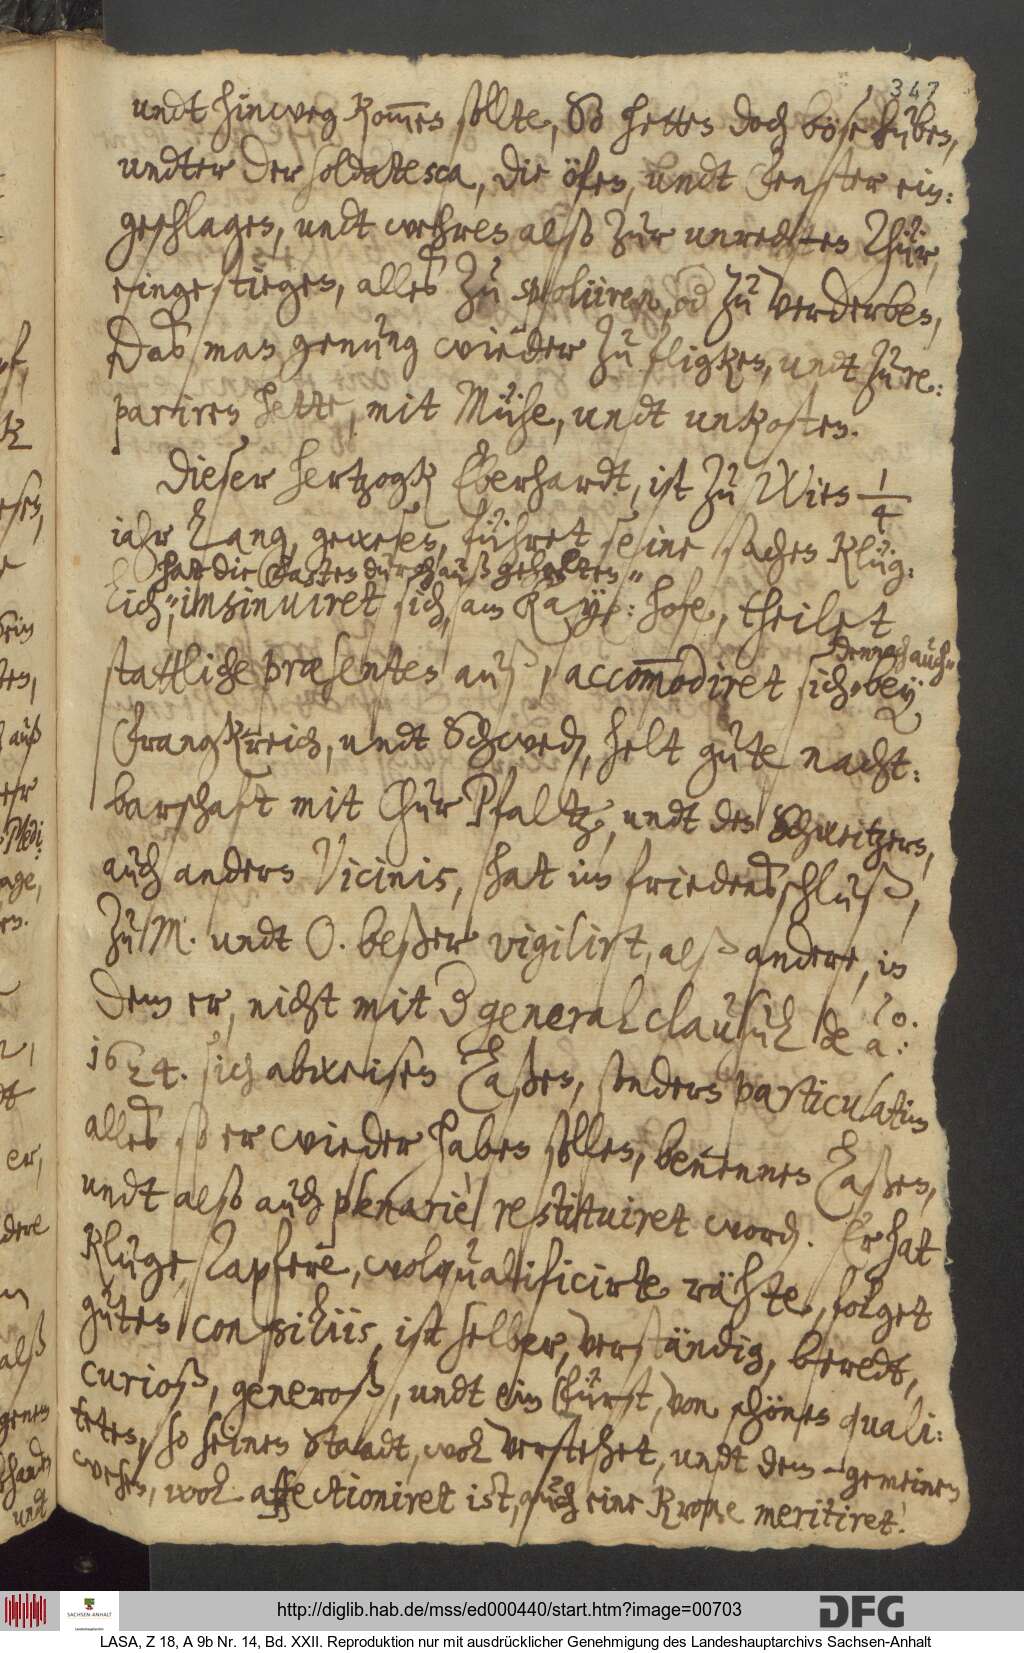 347
undt hinweg kom̅en sollte, So hetten doch böse buben,
undter der soldatesca, die öfen, undt Fenster ein:
geschlagen, undt wehren also zur unrechten Thür,
eingestiegen, alles zu spoliiren, od zu verderben,
Das man genung wieder zu fligken, undt zu re:
pariren hette, mit Mühe, undt unkosten.
Dieser Hertzogk Eberhardt, ist zu Wien 1/4
iahr lang, gewesen, führet seine sachen klüg:
hat die Fasten durchauß gehalten,,
lich,,, insinuiret sich, am Kays: hofe, theilet
demnach auch,,
stattliche præsenten auß, accom̅odiret sich,, bey
Frangkreich, undt Schwed, helt gute nacht:
barschaft mit Chur Pfaltz, undt den Schweitzern,
auch andern Vicinis, hat im friedensschluß,
zu M. undt O. beßer vigilirt, alß andere, in
dem er, nicht mit der general clausul de ao:
1624. sich abweisen laßen, sondern particulatim
alles so er wieder haben sollen, benennen laßen,
undt also auch plenariè restituiret word. Er hat
kluge, Tapfere, wolqualificirte rähte, folget
guten consiliis, ist selber, verständig, beredt,
curioß, generoß, undt ein Fürst, von schönen quali:
teten, so seinen Standt, wol verstehet, undt dem gemeinen
wesen, wol affectioniret ist, auch eine Krone meritiret.
http://diglib.hab.de/mss/ed000440/start.htm?image=00703
SACHSEN-ANHALT
DFG
LASA, Z 18, A 9b Nr. 14, Bd. XXII. Reproduktion nur mit ausdrücklicher Genehmigung des Landeshauptarchivs Sachsen-Anhalt